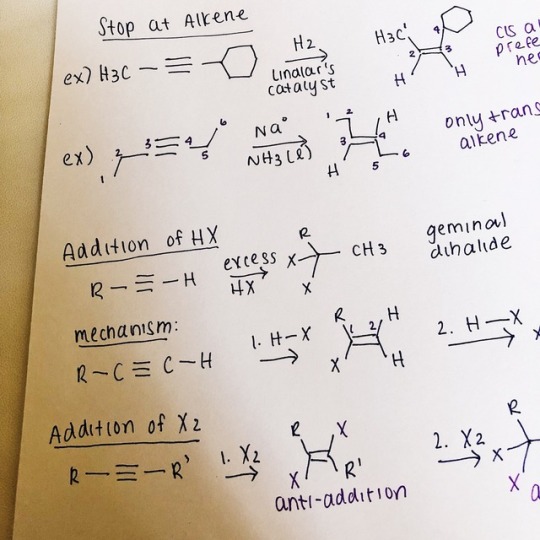 Stop at Alkene
ex) H3C — ≡ —
H2
Lindlar's
catalyst
H3C 1 2 3 4 H H
cis a
prefe
ex) 1 2 3 ≡ 4 5 6
Na°
NH3(l)
1 2 3 4 5 6 H H
only trans
alkene
Addition of HX
R — ≡ — H
excess
HX
R X X CH3
geminal
dihalide
mechanism:
R — C ≡ C — H
1. H–X
R 1 2 H X H
2. H — X
X
Addition of X2
R — ≡ — R'
1. X2
R X X R'
anti-addition
2. X2
R X X